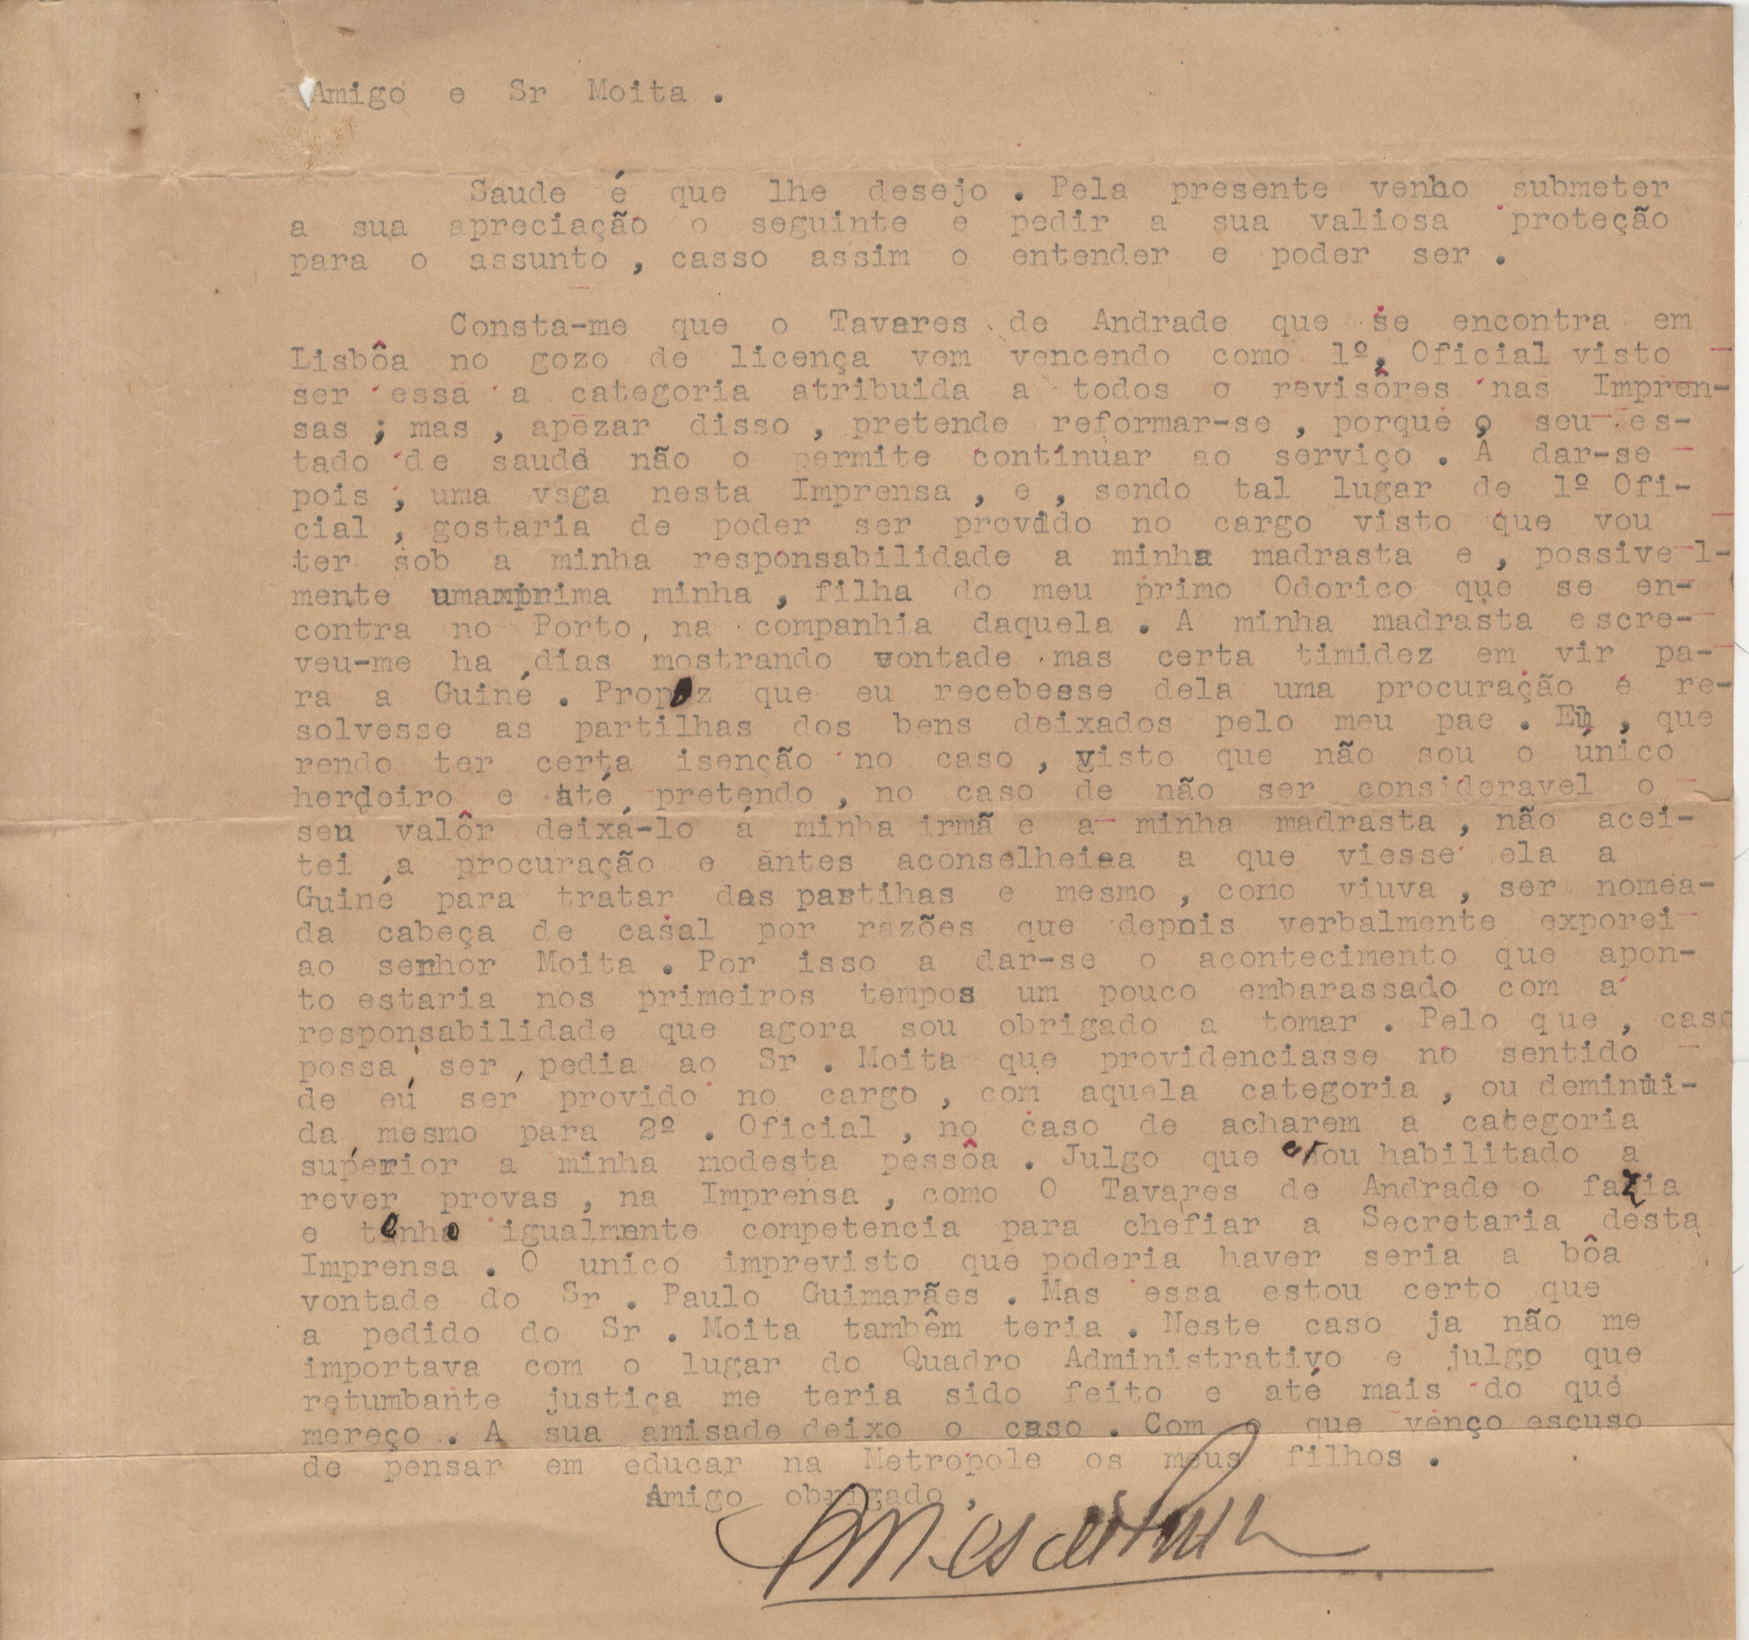 Amigo e Sr Moita .
Saude é que lhe desejo . Pela presente venho submeter
a sua apreciação o seguinte e pedir a sua valiosa proteção
para o assunto , casso assim o entender e poder ser .
Consta-me que o Tavares de Andrade que se encontra em
Lisbôa no gozo de licença vem vencendo como 1º, Oficial visto
ser essa a categoria atribuida a todos o revisôres nas Impren-
sas ; mas , apezar disso , pretende reformar-se , porque o seu es-
tado de saude não o permite continuar ao serviço . A dar-se
pois , uma vaga nesta Imprensa , e , sendo tal lugar de 1º Ofi-
cial , gostaria de poder ser provido no cargo visto que vou
ter sob a minha responsabilidade a minha madrasta e , possivel-
mente uma prima minha , filha do meu primo Odorico que se en-
contra no Porto, na companhia daquela . A minha madrasta escre-
veu-me ha dias mostrando vontade mas certa timidez em vir pa-
ra a Guiné . Propoz que eu recebesse dela uma procuração e re-
solvesse as partilhas dos bens deixados pelo meu pae . Eu , que
rendo ter certa isenção no caso , visto que não sou o único
herdeiro e até pretendo , no caso de não ser consideravel o
seu valôr deixá-lo á minha irmã e a minha madrasta , não acei-
tei a procuração e antes aconselhei-a a que viesse ela a
Guiné para tratar das partihas e mesmo , como viuva , ser nomea-
da cabeça de casal por razões que depois verbalmente exporei
ao senhor Moita . Por isso a dar-se o acontecimento que apon-
to estaria nos primeiros tempos um pouco embarassado com a
responsabilidade que agora sou obrigado a tomar . Pelo que , caso
possa ser , pedia ao Sr . Moita que providenciasse no sentido
de eu ser provido no cargo , com aquela categoria , ou deminui-
da mesmo para 2º . Oficial , no caso de acharem a categoria
superior a minha modesta pessôa . Julgo que estou habilitado a
rever provas , na Imprensa , como O Tavares de Andrade o fazia
e tenho igualmente competencia para chefiar a Secretaria desta
Imprensa . O unico imprevisto que poderia haver seria a bôa
vontade do Sr . Paulo Guimarães . Mas essa estou certo que
a pedido do Sr . Moita tambêm teria . Neste caso ja não me
importava com o lugar do Quadro Administrativo e julgo que
retumbante justiça me teria sido feito e até mais do que
mereço . A sua amisade deixo o caso . Com o que venço escuso
de pensar em educar na Metropole os meus filhos .
Amigo obrigado ,